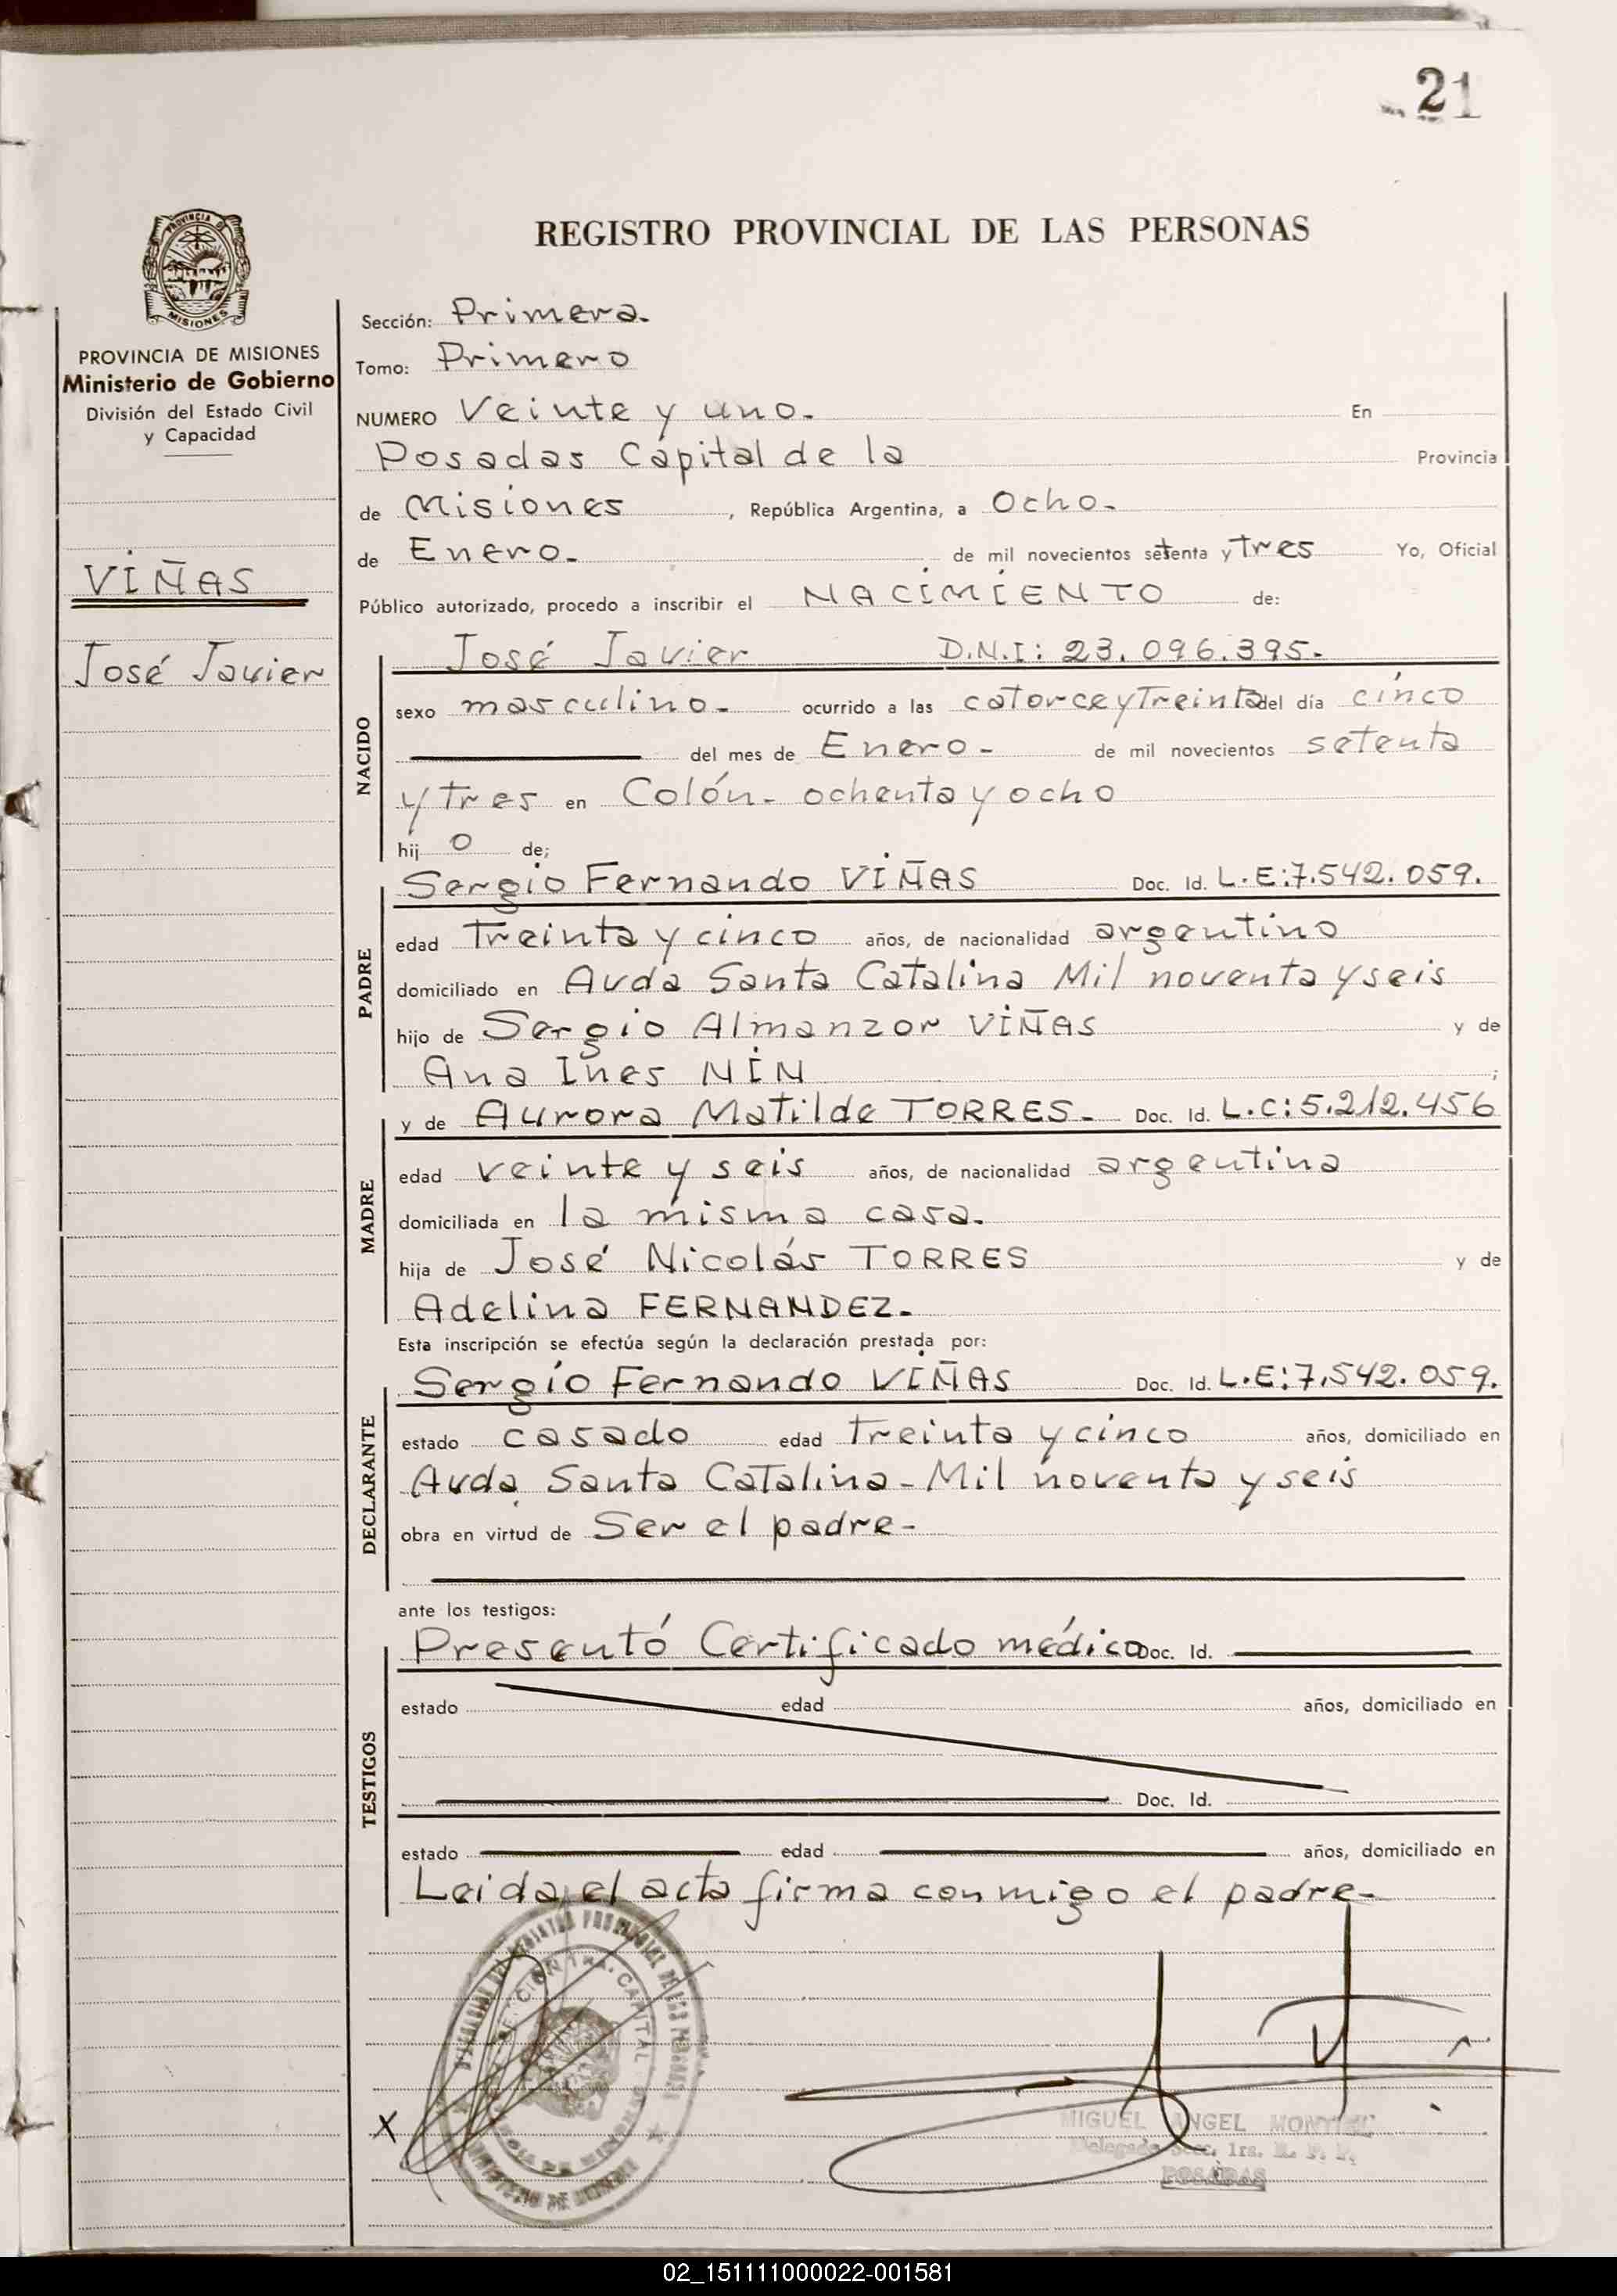 21
PROVINCIA DE
MISIONES
PROVINCIA DE MISIONES
Ministerio de Gobierno
División del Estado Civil
y Capacidad
VIÑAS
José Javier
REGISTRO PROVINCIAL DE LAS PERSONAS
Sección: Primera.
Tomo: Primero
NUMERO Veinte y uno. En
Posadas Capital de la Provincia
de Misiones, República Argentina, a Ocho.
de Enero. de mil novecientos setenta y Tres Yo, Oficial
Público autorizado, procedo a inscribir el NACIMIENTO de:
José Javier D.N.I: 23.096.395.
NACIDO
sexo masculino. ocurrido a las catorce y Treinta del día cinco
del mes de Enero - de mil novecientos setenta
y Tres en Colón - ochenta y ocho
hij o de;
Sergio Fernando VIÑAS Doc. Id. L.E:7.542.059.
PADRE
edad Treinta y cinco años, de nacionalidad argentino
domiciliado en Avda Santa Catalina Mil noventa y seis
hijo de Sergio Almanzor VIÑAS y de
Ana Ines NIN ;
y de Aurora Matilde TORRES. Doc. Id. L.C:5.212.456
MADRE
edad veinte y seis años, de nacionalidad argentina
domiciliada en la misma casa.
hija de José Nicolás TORRES y de
Adelina FERNANDEZ.
Esta inscripción se efectúa según la declaración prestada por:
Sergio Fernando VIÑAS Doc. Id. L.E:7.542.059.
DECLARANTE
estado casado edad Treinta y cinco años, domiciliado en
Avda Santa Catalina - Mil noventa y seis
obra en virtud de Ser el padre -
ante los testigos:
Presentó Certificado médico Doc. Id.
TESTIGOS
estado edad años, domiciliado en
Doc. Id.
estado edad años, domiciliado en
Leida el acta firma conmigo el padre -
X
MIGUEL ANGEL MONTIEL
Delegado Secc. 1ra. R. P. P.
POSADAS
02_151111000022-001581